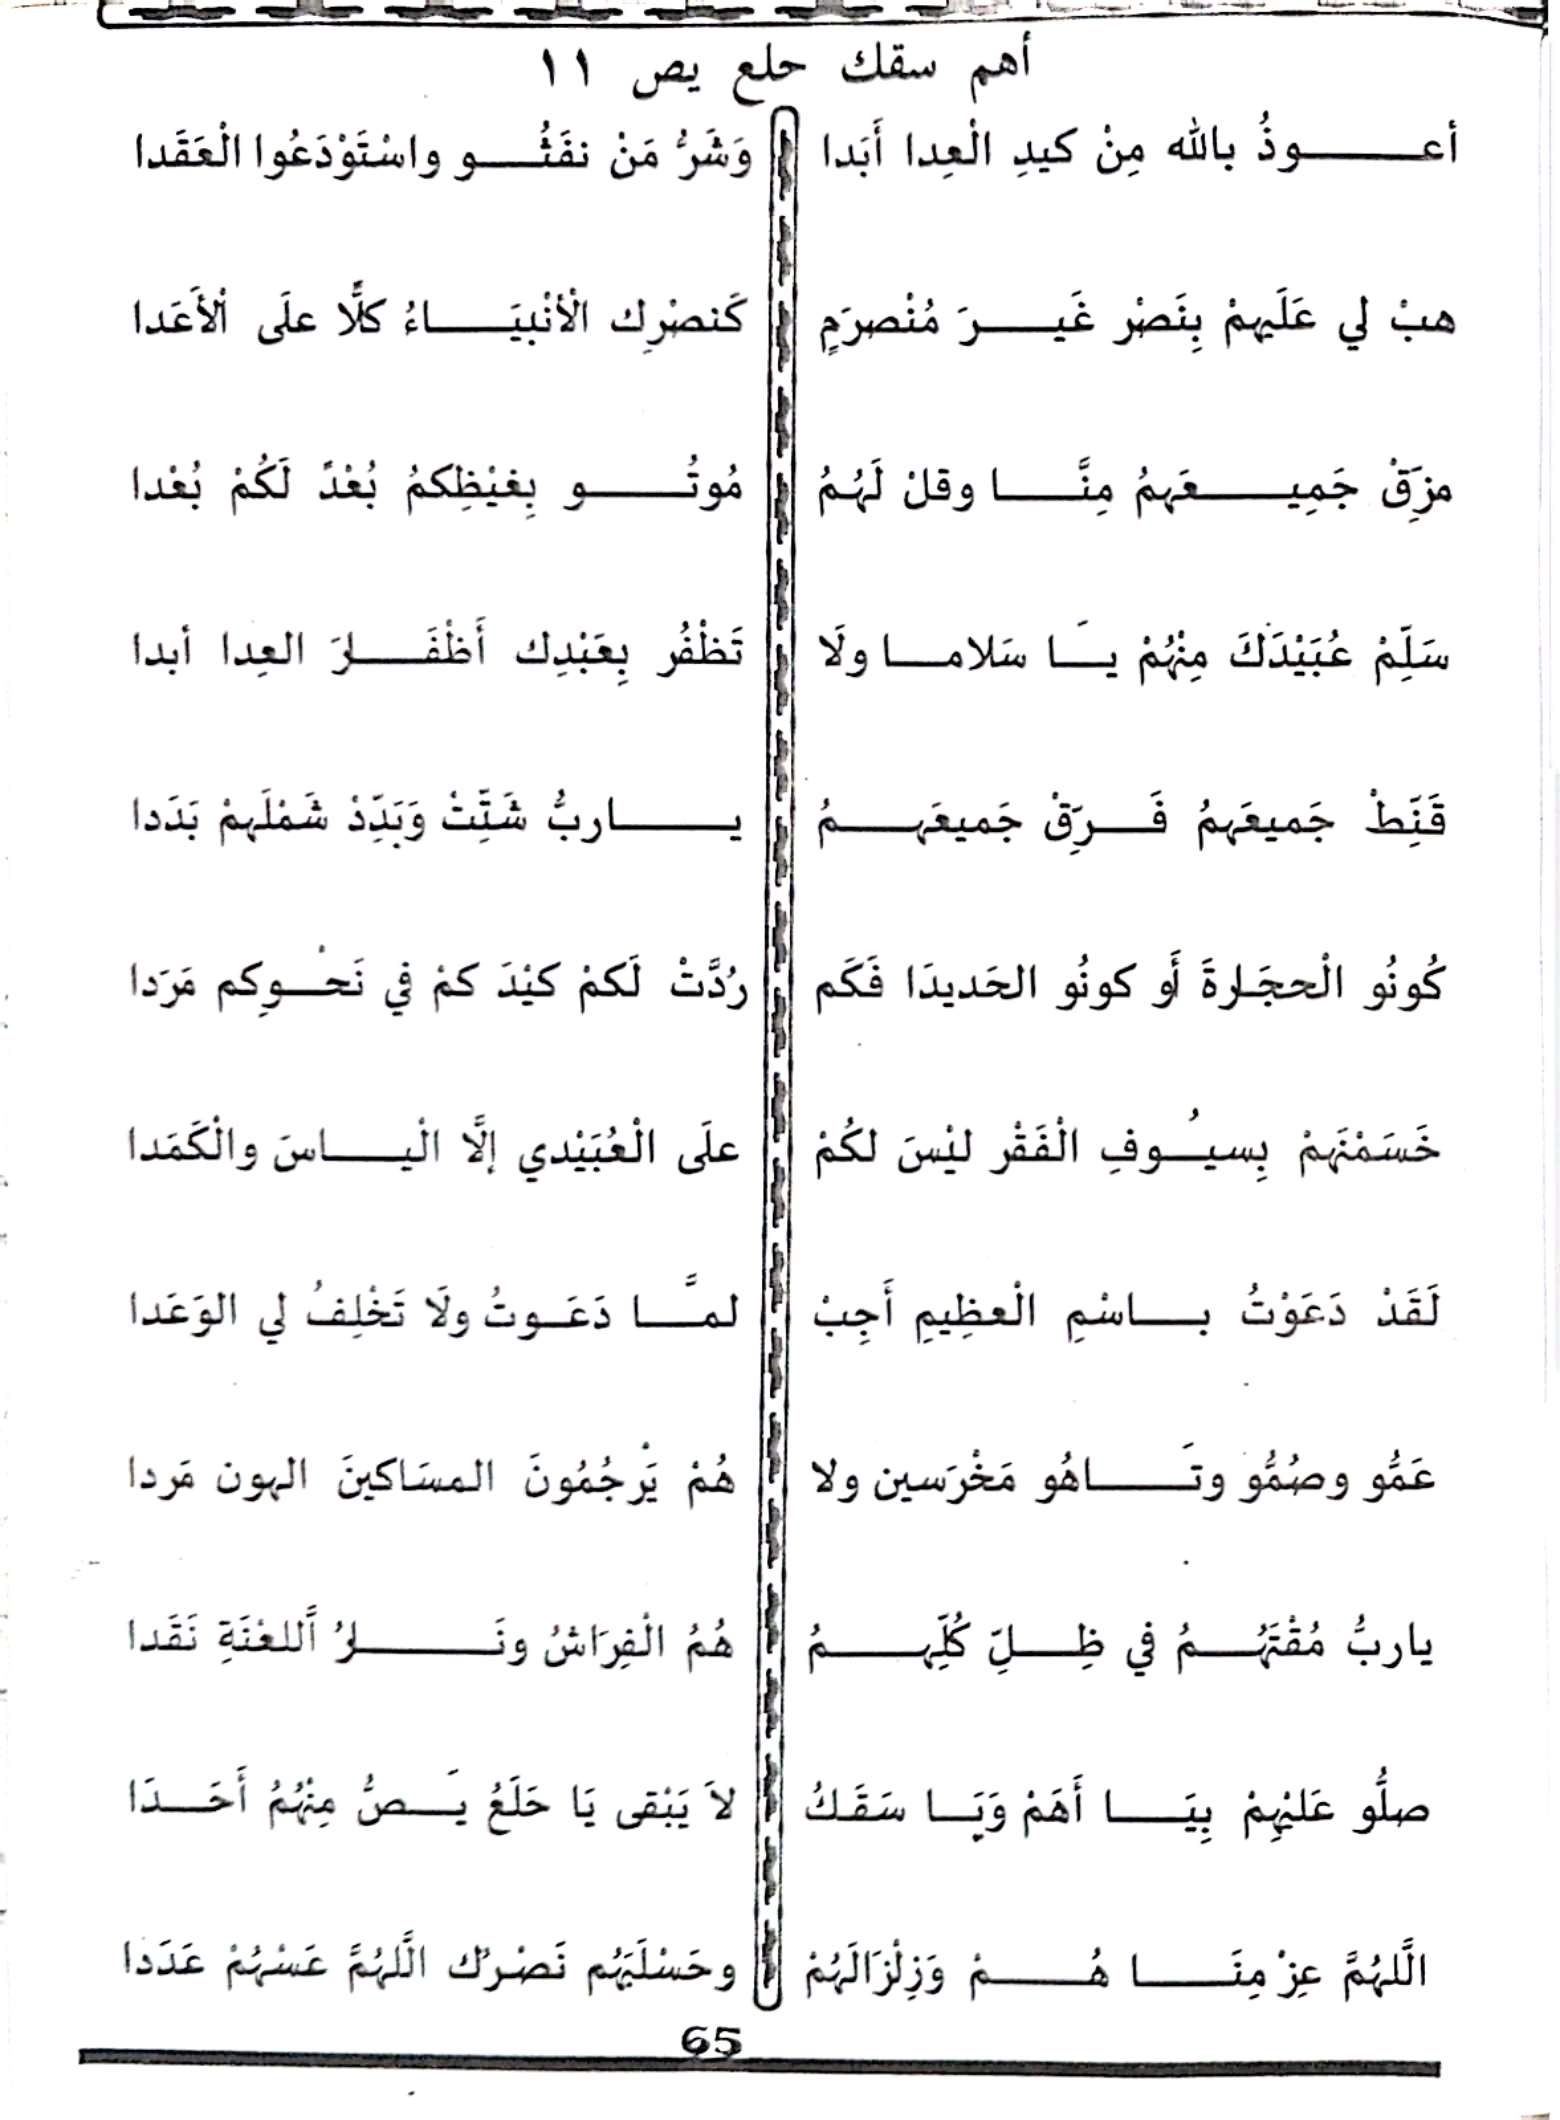 أهم سقك حلع يص ١١
أعوذُ بالله مِنْ كيدِ الْعِدا أَبَدا وَشَرُّ مَنْ نفَثُو واسْتَوْدَعُوا الْعَقَدا
هبْ لي عَلَيهِمْ بِنَصْر غَيرَ مُنْصرَمٍ كَنصْرِك الْأنْبيَاءُ كلًّا علَى الْأَعَدا
مزِّقْ جَمِيعَهمُ مِنَّا وقلْ لَهُمُ مُوتُو بِغيْظِكمُ بُعْدً لَكُمْ بُعْدا
سَلِّمْ عُبَيْدَكَ مِنْهُمْ يَا سَلاما ولَا تَظْفُر بِعَبْدِك أَظْفَارَ العِدا أبدا
قَنِّطْ جَميعَهمُ فَرِّقْ جَميعَهمُ ياربُّ شَتِّتْ وَبَدِّدْ شَمْلَهمْ بَدَدا
كُونُو الْحجَارةَ أَو كونُو الحَديدَا فَكَم رُدَّتْ لَكمْ كيْدَ كمْ في نَحْوِكم مَرَدا
خَسَمْتَهمْ بِسيُوفِ الْفَقْر ليْسَ لكُمْ علَى الْعُبَيْدي إلَّا الْياسَ والْكَمَدا
لَقَدْ دَعَوْتُ باسْمِ الْعظِيمِ أَجِبْ لمَّا دَعَوتُ ولَا تَخْلِفُ لي الوَعَدا
عَمُّو وصُمُّو وتَاهُو مَخْرَسين ولا هُمْ يَرْجُمُونَ المسَاكينَ الهون مَردا
ياربُّ مُقْتَهُمُ في ظِلِّ كُلِّهِمُ هُمُ الْفِرَاشُ ونَارُ أَللعْنَةِ نَقَدا
صلُّو عَليْهِمْ بِيَا أَهَمْ وَيَا سَقَكُ لاَ يَبْقى يَا حَلَعُ يَصُّ مِنْهُمُ أَحَدَا
الَّلهُمَّ عِزْ مِنَا هُمْ وَزِلْزَالَهُمْ وحَسْلَيَهُم نَصْرُك الَّلهُمَّ عَسْهُمْ عَدَدا
65